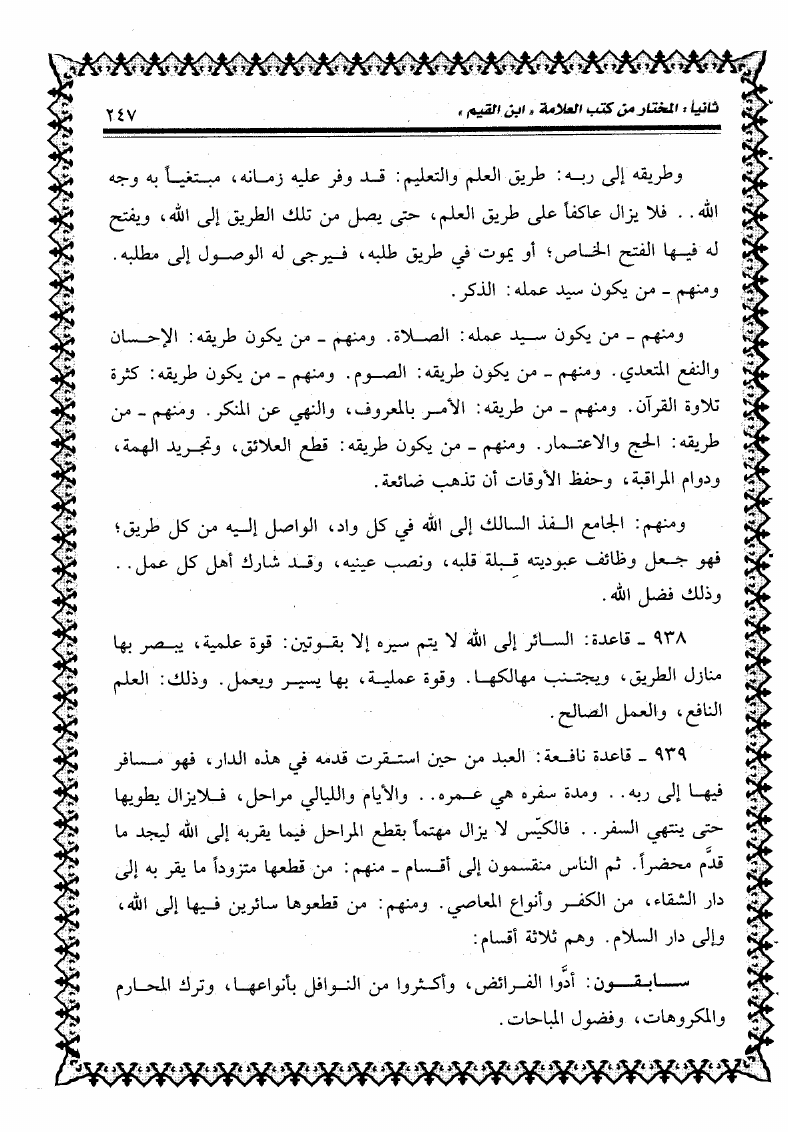 ثانياً : المختار من كتب العلامة « ابن القيم » ٢٤٧
وطريقه إلى ربه : طريق العلم والتعليم : قد وفر عليه زمانه، مبتغياً به وجه
الله . . فلا يزال عاكفاً على طريق العلم، حتى يصل من تلك الطريق إلى الله، ويفتح
له فيها الفتح الخاص؛ أو يموت في طريق طلبه، فيرجى له الوصول إلى مطلبه .
ومنهم ـ من يكون سيد عمله : الذكر .
ومنهم ـ من يكون سيد عمله : الصلاة . ومنهم ـ من يكون طريقه : الإحسان
والنفع المتعدي . ومنهم ـ من يكون طريقه : الصوم . ومنهم ـ من يكون طريقه : كثرة
تلاوة القرآن . ومنهم ـ من طريقه : الأمر بالمعروف، والنهي عن المنكر . ومنهم ـ من
طريقه : الحج والاعتمار . ومنهم ـ من يكون طريقه : قطع العلائق، وتجريد الهمة،
ودوام المراقبة، وحفظ الأوقات أن تذهب ضائعة .
ومنهم : الجامع الفذ السالك إلى الله في كل واد، الواصل إليه من كل طريق؛
فهو جعل وظائف عبوديته قِبلة قلبه، ونصب عينيه، وقد شارك أهل كل عمل . .
وذلك فضل الله .
٩٣٨ ـ قاعدة : السائر إلى الله لا يتم سيره إلا بقوتين : قوة علمية، يبصر بها
منازل الطريق، ويجتنب مهالكها . وقوة عملية، بها يسير ويعمل . وذلك : العلم
النافع، والعمل الصالح .
٩٣٩ ـ قاعدة نافعة : العبد من حين استقرت قدمه في هذه الدار، فهو مسافر
فيها إلى ربه . . ومدة سفره هي عمره . . والأيام والليالي مراحل، فلايزال يطويها
حتى ينتهي السفر . . فالكيّس لا يزال مهتماً بقطع المراحل فيما يقربه إلى الله ليجد ما
قدَّم محضراً . ثم الناس منقسمون إلى أقسام ـ منهم : من قطعها متزوداً ما يقر به إلى
دار الشقاء، من الكفر وأنواع المعاصي . ومنهم : من قطعوها سائرين فيها إلى الله،
وإلى دار السلام . وهم ثلاثة أقسام :
سابقون : أدَّوا الفرائض، وأكثروا من النوافل بأنواعها، وترك المحارم
والمكروهات، وفضول المباحات .